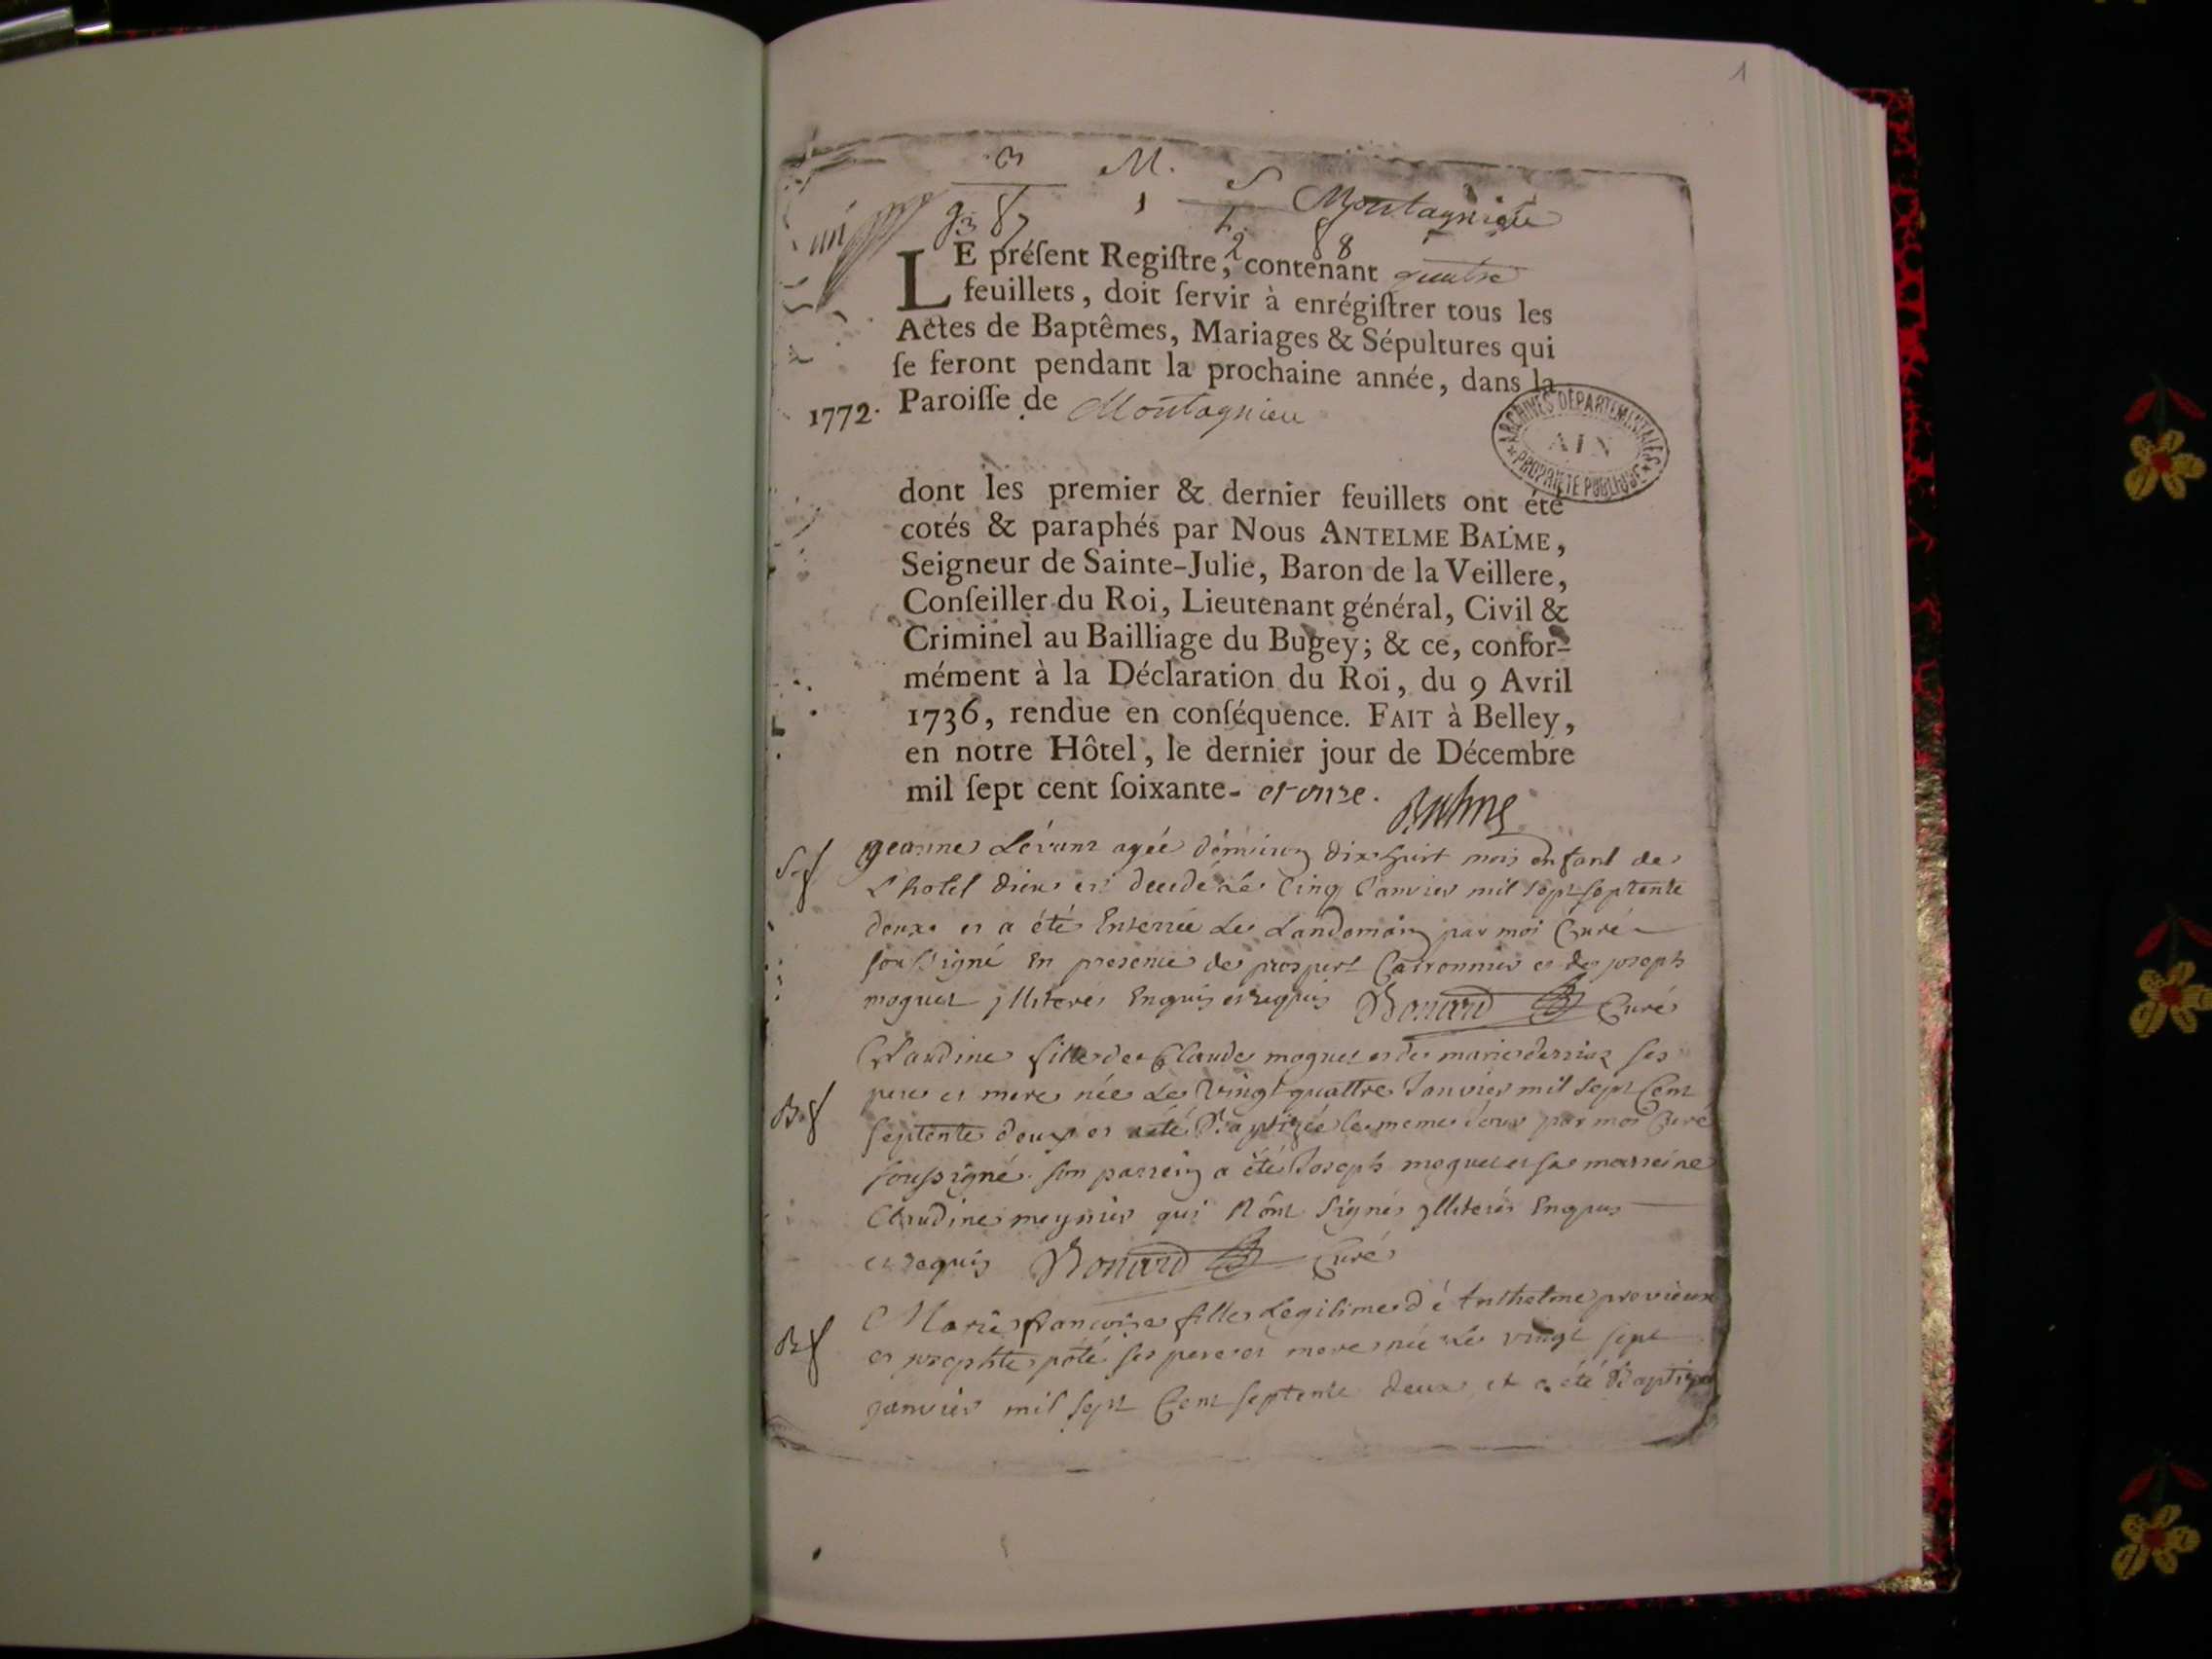 1
B M. S Montagnieu
g3 f7 1 h2 f8
LE préſent Regiſtre, contenant quatre
feuillets, doit ſervir à enrégiſtrer tous les
Actes de Baptêmes, Mariages & Sépultures qui
ſe feront pendant la prochaine année, dans la
1772. Paroiſſe de Montagnieu
ARCHIVES DÉPARTEMENTALES
AIN
PROPRIÉTÉ PUBLIQUE
dont les premier & dernier feuillets ont été
cotés & paraphés par Nous ANTELME BALME,
Seigneur de Sainte-Julie, Baron de la Veillere,
Conſeiller du Roi, Lieutenant général, Civil &
Criminel au Bailliage du Bugey; & ce, confor-
mément à la Déclaration du Roi, du 9 Avril
1736, rendue en conſéquence. FAIT à Belley,
en notre Hôtel, le dernier jour de Décembre
mil ſept cent ſoixante- et onze. Balme
S f geanne agée d'environ dix huit mois enfant de
L'hotel dieu et decedé Le Cinq Janvier mil sept septente
deux et a été Enterrée Le Landemain par moi Curé
soussigné En presence de prospert Carronnier et de joseph
moguet jlliterés Enquis et requis Bonard Curé
Claudine fille de Claude moguet et de marie ses
B f pere et mere née Le Vingt quattre Janvier mil sept Cent
septente deux et a été Baptizée le meme Jour par moi Curé
soussigné son parrein a été Joseph moguet et sa marreine
Claudine meynier qui N'ont signés jlliterés Enquis
et requis Bonard Curé
B f Marie francoise fille Legitime dé Anthelme provieux
et josephte poté ses pere et mere née Le vingt sept
janvier mil sept Cent septente deux et a été Baptizée